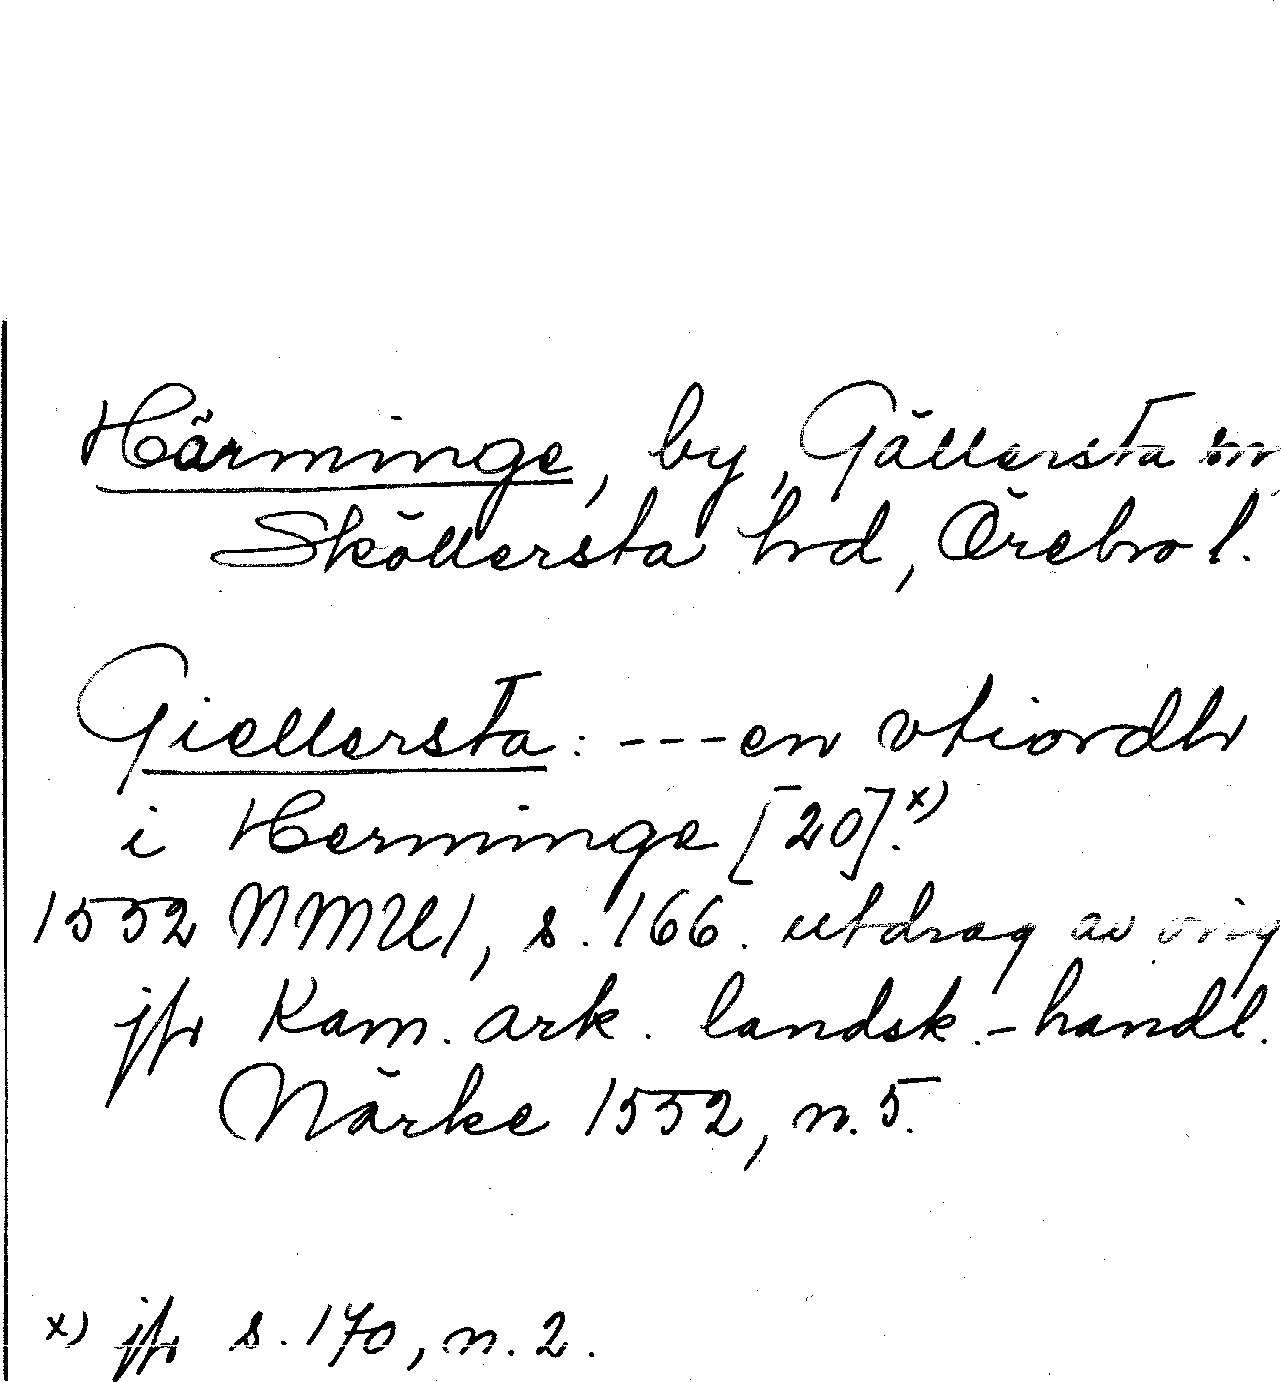 Härminge, by, Gällersta sn
Sköllersta hrd, Örebro l.
Giellersta: ---en vtiordh
i Herminge [20].x)
1552 NMU1, s. 166. utdrag av orig
jfr Kam. ark. landsk.-handl.
Närke 1552, n. 5.
x) jfr s. 170, n. 2.